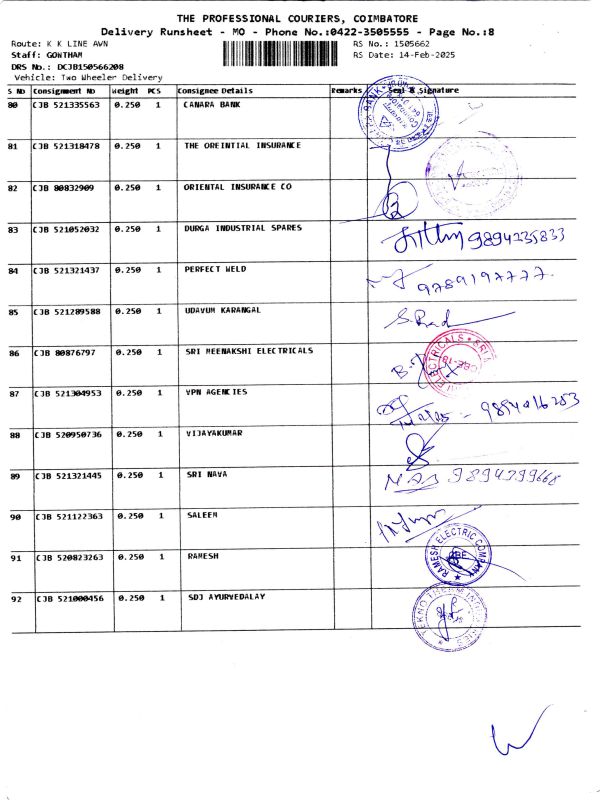 THE PROFESSIONAL COURIERS, COIMBATORE
Delivery Runsheet - MO - Phone No.:0422-3505555 - Page No.:8
Route: K K LINE AWN
RS No.: 1505662
Staff: GONTHAM
RS Date: 14-Feb-2025
DRS No.: DCJB150566208
Vehicle: Two Wheeler Delivery
S No Consignment No Weight PCS Consignee Details Remarks Seal & Signature
80 CJB 521335563 0.250 1 CANARA BANK
81 CJB 521318478 0.250 1 THE OREINTIAL INSURANCE
82 CJB 80832909 0.250 1 ORIENTAL INSURANCE CO
83 CJB 521052032 0.250 1 DURGA INDUSTRIAL SPARES 9894235833
84 CJB 521321437 0.250 1 PERFECT WELD 9789197777.
85 CJB 521289588 0.250 1 UDAVUM KARANGAL
86 CJB 80876797 0.250 1 SRI MEENAKSHI ELECTRICALS
87 CJB 521304953 0.250 1 VPN AGENCIES 9894016283
88 CJB 520950736 0.250 1 VIJAYAKUMAR
89 CJB 521321445 0.250 1 SRI NAVA 9894299668
90 CJB 521122363 0.250 1 SALEEM
91 CJB 520823263 0.250 1 RAMESH RAMESH ELECTRIC COMPANY
92 CJB 521000456 0.250 1 SDJ AYURVEDALAY